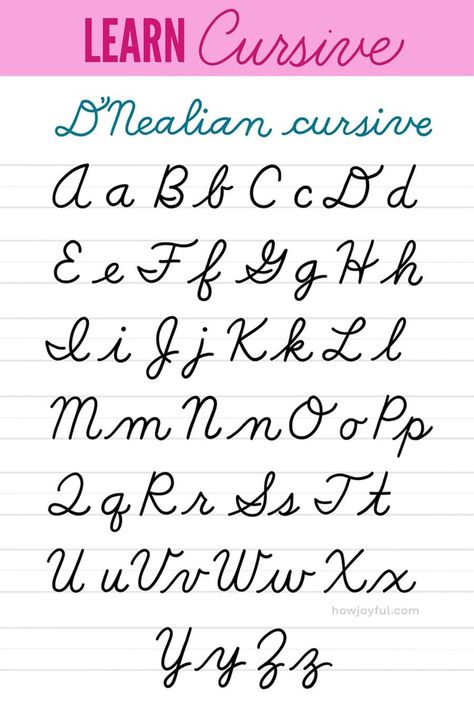 LEARN Cursive
D'Nealian cursive
A a B b C c D d
E e F f G g H h
I i J j K k L l
M m N n O o P p
Q q R r S s T t
U u V v W w X x
howjoyful.com
Y y Z z